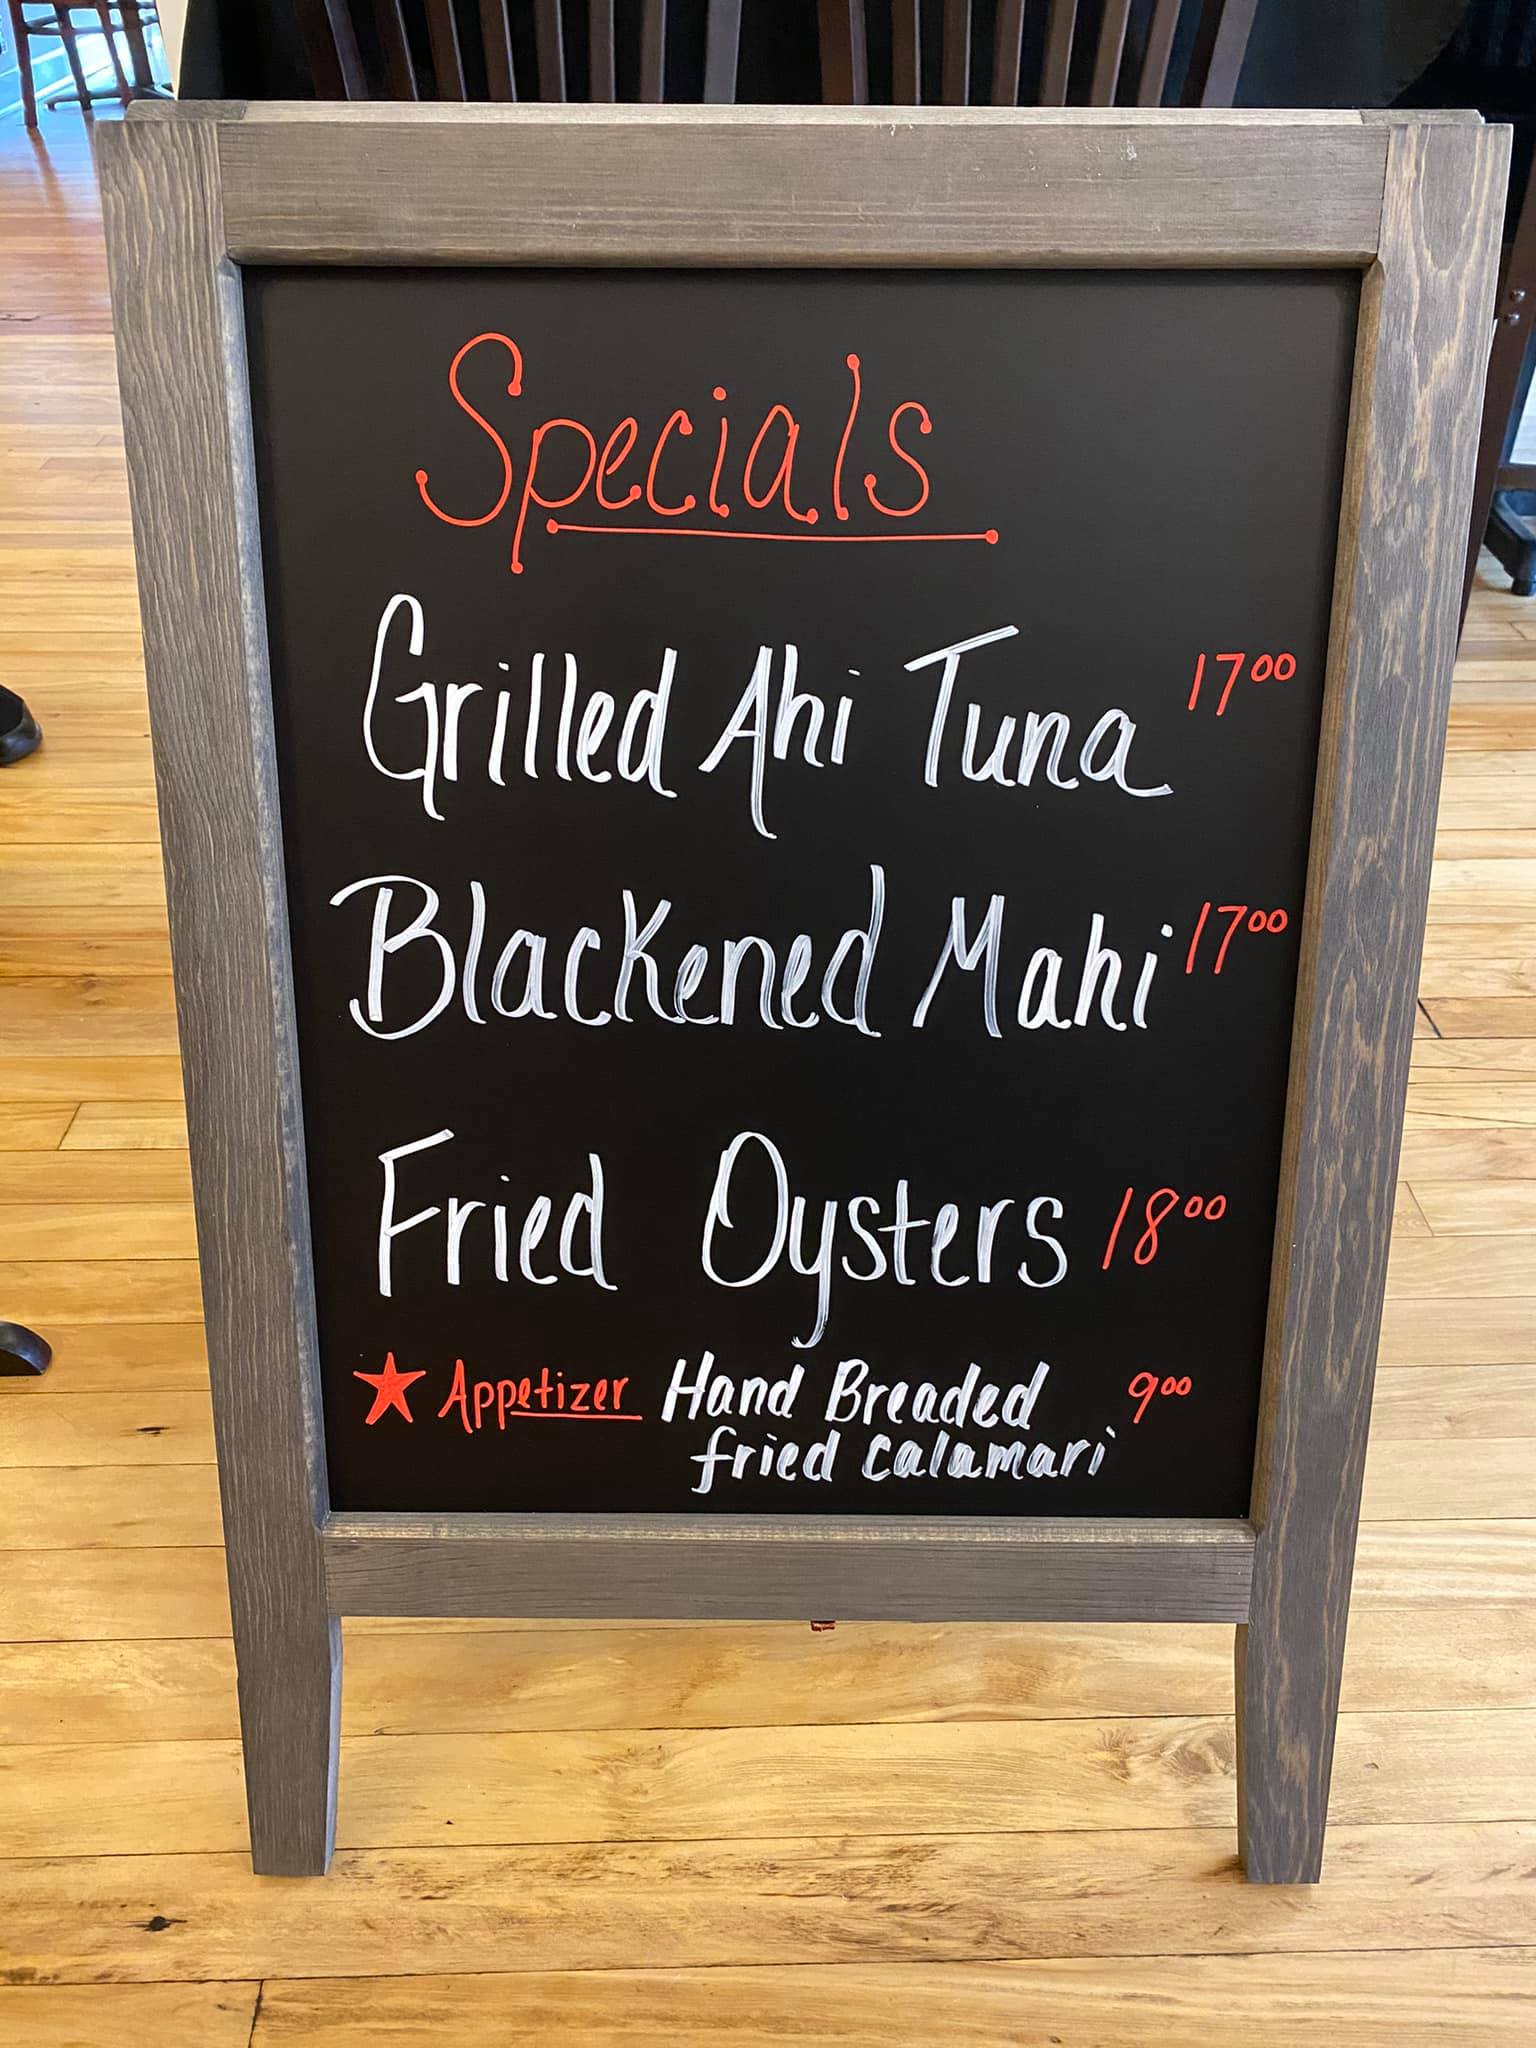 Specials
Grilled Ahi Tuna 17⁰⁰
Blackened Mahi 17⁰⁰
Fried Oysters 18⁰⁰
Appetizer Hand Breaded 9⁰⁰
fried calamari